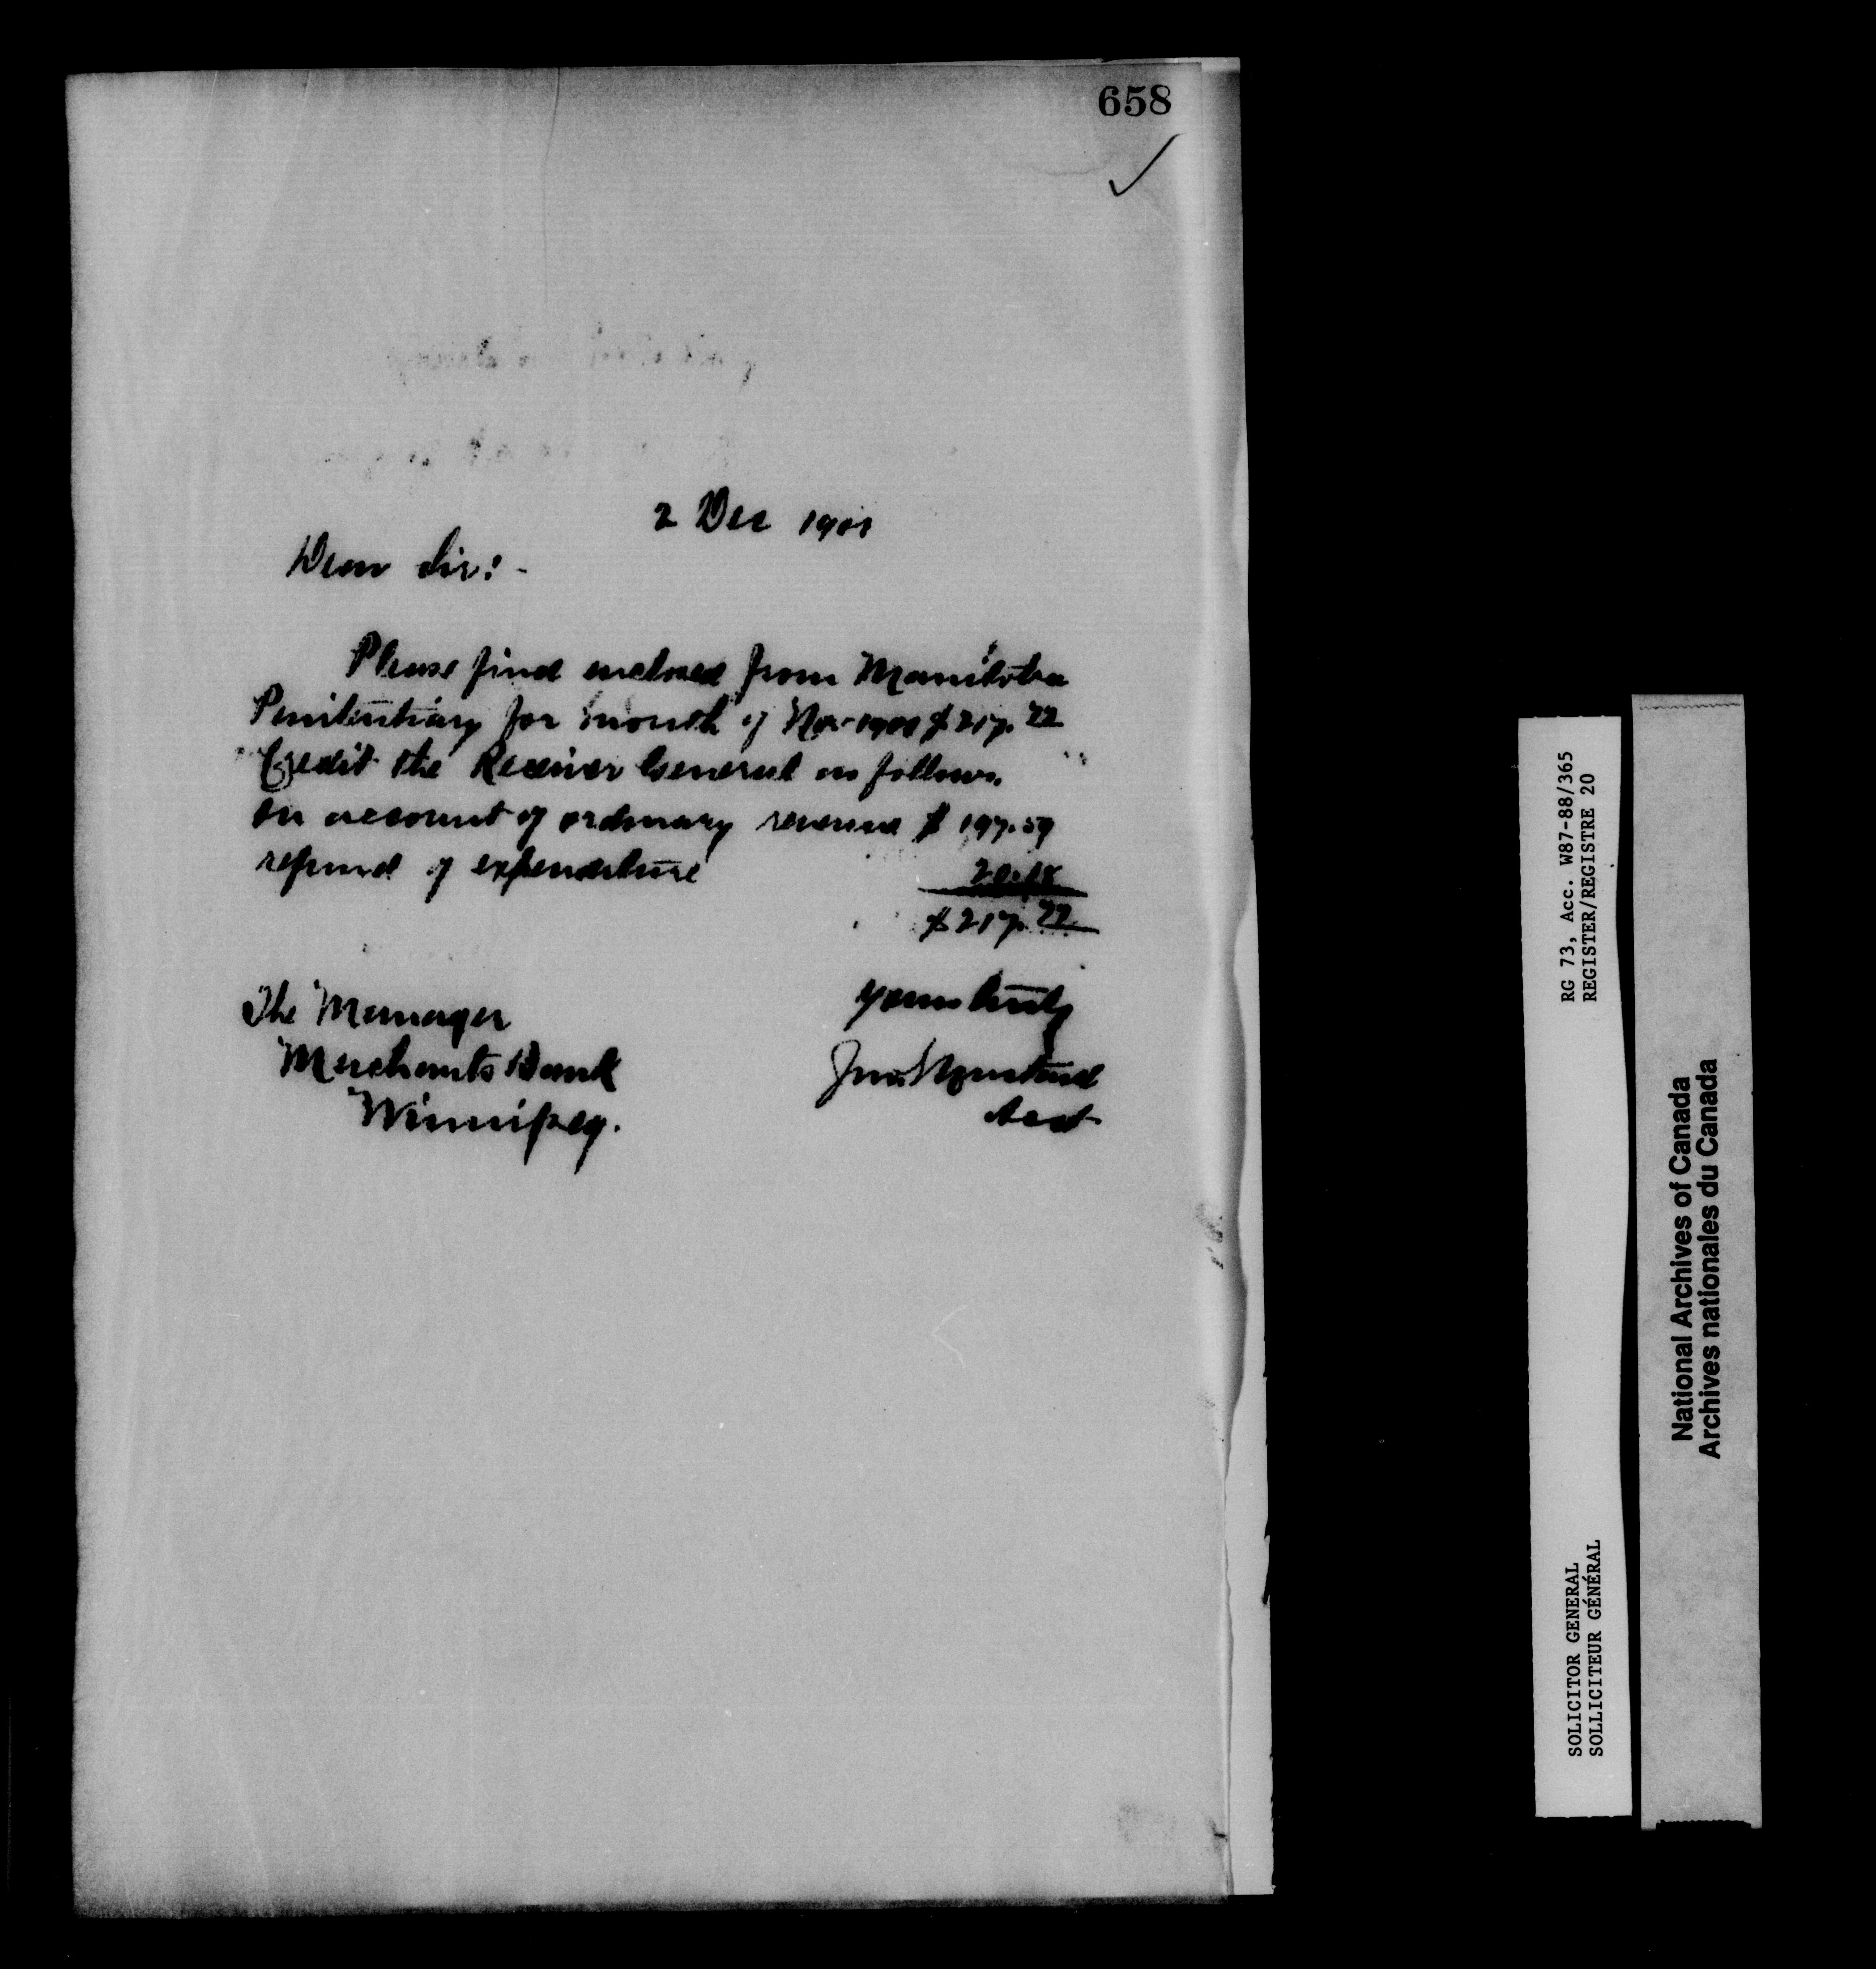 658
2 Dec 1901
Dear Sir:-
Please find enclosed from Manitoba
Penitentiary for month of Nov 1901 $217.
Credit the Receiver General as follows.
On account of ordinary revenue $ 197.59
refund of expenditure
$217.
Yours truly
The Manager
Merchants Bank
Winnipeg.
Acct
RG 73, Acc. W87-88/365
REGISTER/REGISTRE 20
SOLICITOR GENERAL
SOLLICITEUR GÉNÉRAL
National Archives of Canada
Archives nationales du Canada